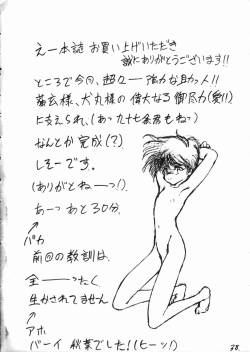 えー本誌お買い上げいただき
誠にありがとうございます!!
ところで今回、超々一強力な助っ人!!
様、犬丸様の偉大なる御尽力(愛!!)
に支えられ、(あっ九十七条君もねっ)
なんとか完成(?)
しそーです。
(ありがとねーっ!)
あーっあと30分。
バカ
前回の教訓は、
全――ったく
生かされてません
アホ
バーイ 秋葉でした!(ヒーッ!)
38